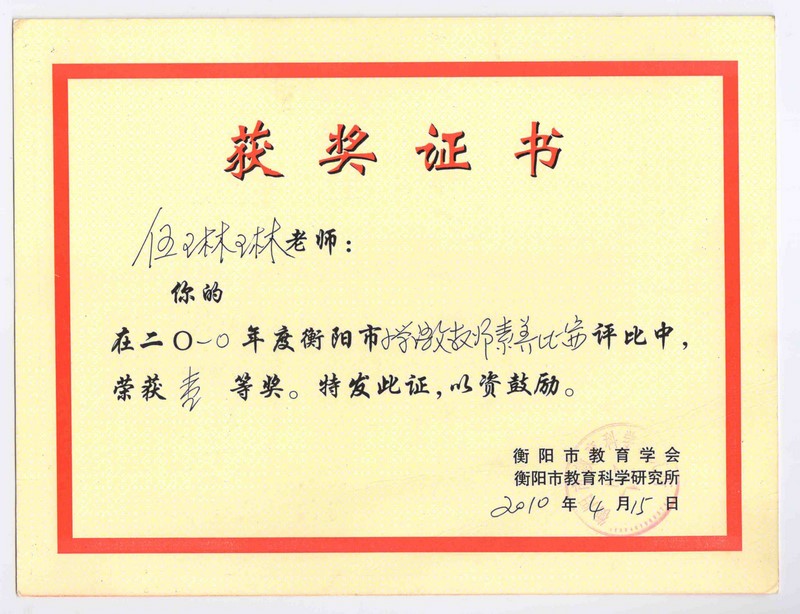 获奖证书
伍琳琳老师：
你的
在二〇一〇年度衡阳市小学教师素养比赛评比中，
荣获壹等奖。特发此证，以资鼓励。
衡阳市教育学会
衡阳市教育科学研究所
2010年4月15日